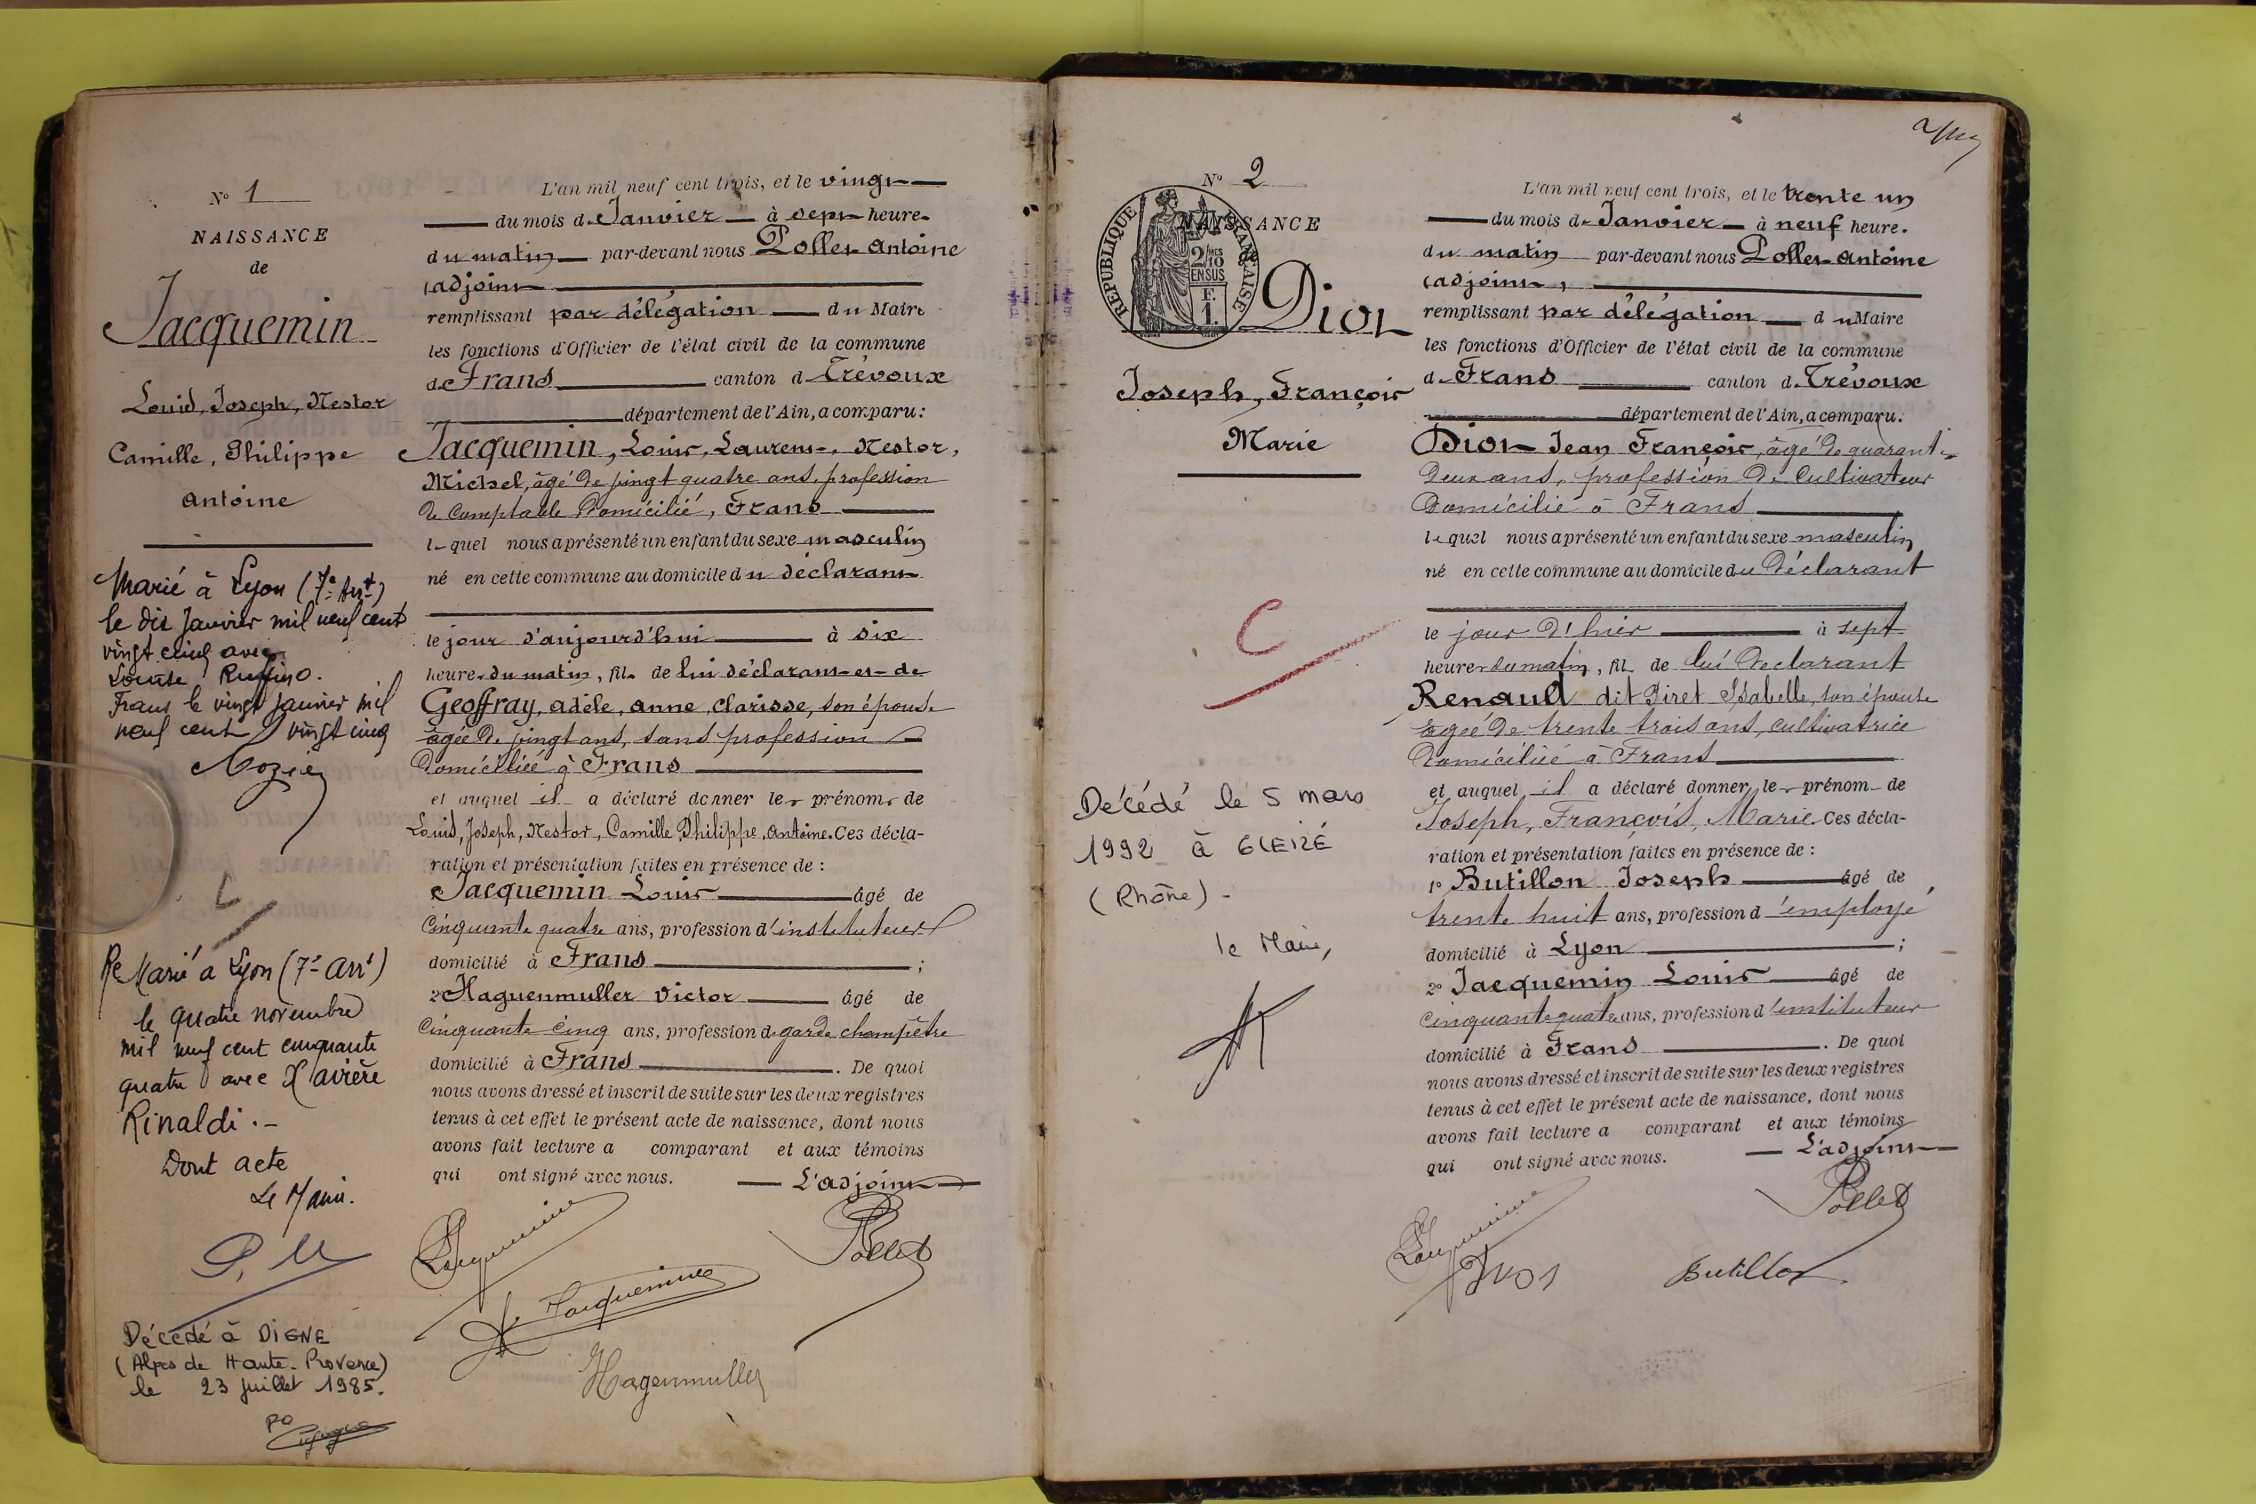 N° 1
NAISSANCE
de
Jacquemin
Louis, Joseph, Nestor
Camille, Philippe
Antoine
Marié à Lyon (7e Arrt)
le dix Janvier mil neuf cent
vingt cinq avec
Louise Ruffino.
Frans le vingt janvier mil
neuf cent vingt cinq
Re Marié a Lyon (7e arrt)
le quatre novembre
mil neuf cent cinquante
quatre avec Xavière
Rinaldi.-
Dont acte
Le Maire.
Décédé à DIGNE
(Alpes de Haute-Provence)
le 23 juillet 1985.
po
L'an mil neuf cent trois, et le vingt
du mois de Janvier à sept heures
du matin par-devant nous Pollet Antoine
adjoint
remplissant par délégation du Maire
les fonctions d'Officier de l'état civil de la commune
de Frans canton de Trévoux
département de l'Ain, a comparu:
Jacquemin, Louis, Laurent, Nestor,
Michel, âgé de vingt quatre ans, profession
de comptable domicilié, Frans
lequel nous a présenté un enfant du sexe masculin
né en cette commune au domicile du déclarant
le jour d'aujourd'hui à six
heures du matin, fils de lui déclarant et de
Geoffray, adèle, anne, clarisse, son épouse
âgée de vingt ans, sans profession
domiciliée à Frans
et auquel il a déclaré donner les prénoms de
Louis, Joseph, Nestor, Camille Philippe, Antoine. Ces décla-
ration et présentation faites en présence de :
Jacquemin Louis âgé de
cinquante quatre ans, profession d'instituteur
domicilié à Frans ;
2° Haguenmuller Victor âgé de
cinquante cinq ans, profession de garde champêtre
domicilié à Frans . De quoi
nous avons dressé et inscrit de suite sur les deux registres
tenus à cet effet le présent acte de naissance, dont nous
avons fait lecture a comparant et aux témoins
qui ont signé avec nous. L'adjoint
Jacquemin
Pollet
Jacquemin
Hagenmuller
N° 2
NAISSANCE
RÉPUBLIQUE FRANÇAISE
2/10MES
EN SUS
F.
1.
Dior
Joseph, François
Marie
C
Décédé le 5 mars
1992 à GLEIZÉ
(Rhône) -
le Maire,
L'an mil neuf cent trois, et le trente un
du mois de Janvier à neuf heures
du matin par-devant nous Pollet Antoine
adjoint,
remplissant par délégation du Maire
les fonctions d'Officier de l'état civil de la commune
de Frans canton de Trévoux
département de l'Ain, a comparu:
Dior Jean François, âgé de quarante
deux ans, profession de Cultivateur
domicilié à Frans
lequel nous a présenté un enfant du sexe masculin
né en cette commune au domicile du déclarant
le jour d'hier à sept
heures du matin, fils de lui declarant
Renault dit Piret Isabelle, son épouse
agée de trente trois ans, cultivatrice
domiciliée à Frans
et auquel il a déclaré donner les prénoms de
Joseph, François, Marie. Ces décla-
ration et présentation faites en présence de :
1° Butillon Joseph âgé de
trente huit ans, profession d'employé
domicilié à Lyon ;
2° Jacquemin Louis âgé de
cinquante quatre ans, profession d'instituteur
domicilié à Frans . De quoi
nous avons dressé et inscrit de suite sur les deux registres
tenus à cet effet le présent acte de naissance, dont nous
avons fait lecture a comparant et aux témoins
qui ont signé avec nous. L'adjoint
Pollet
Jacquemin
Butillon